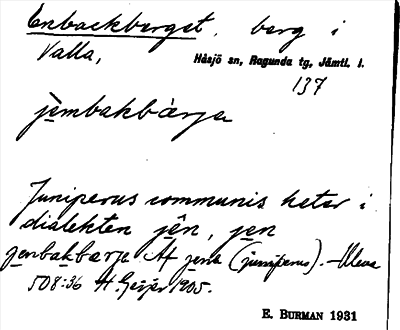 Enbackberget, berg i
Valla, Håsjö sn, Ragunda tg, Jämtl. l.
137
jèmbakbàrja
Juniperus communis heter i
dialekten jên, jen
jenbakbarja Af jena (juniperus). –
508:36 H Geijer 1905.
E. BURMAN 1931